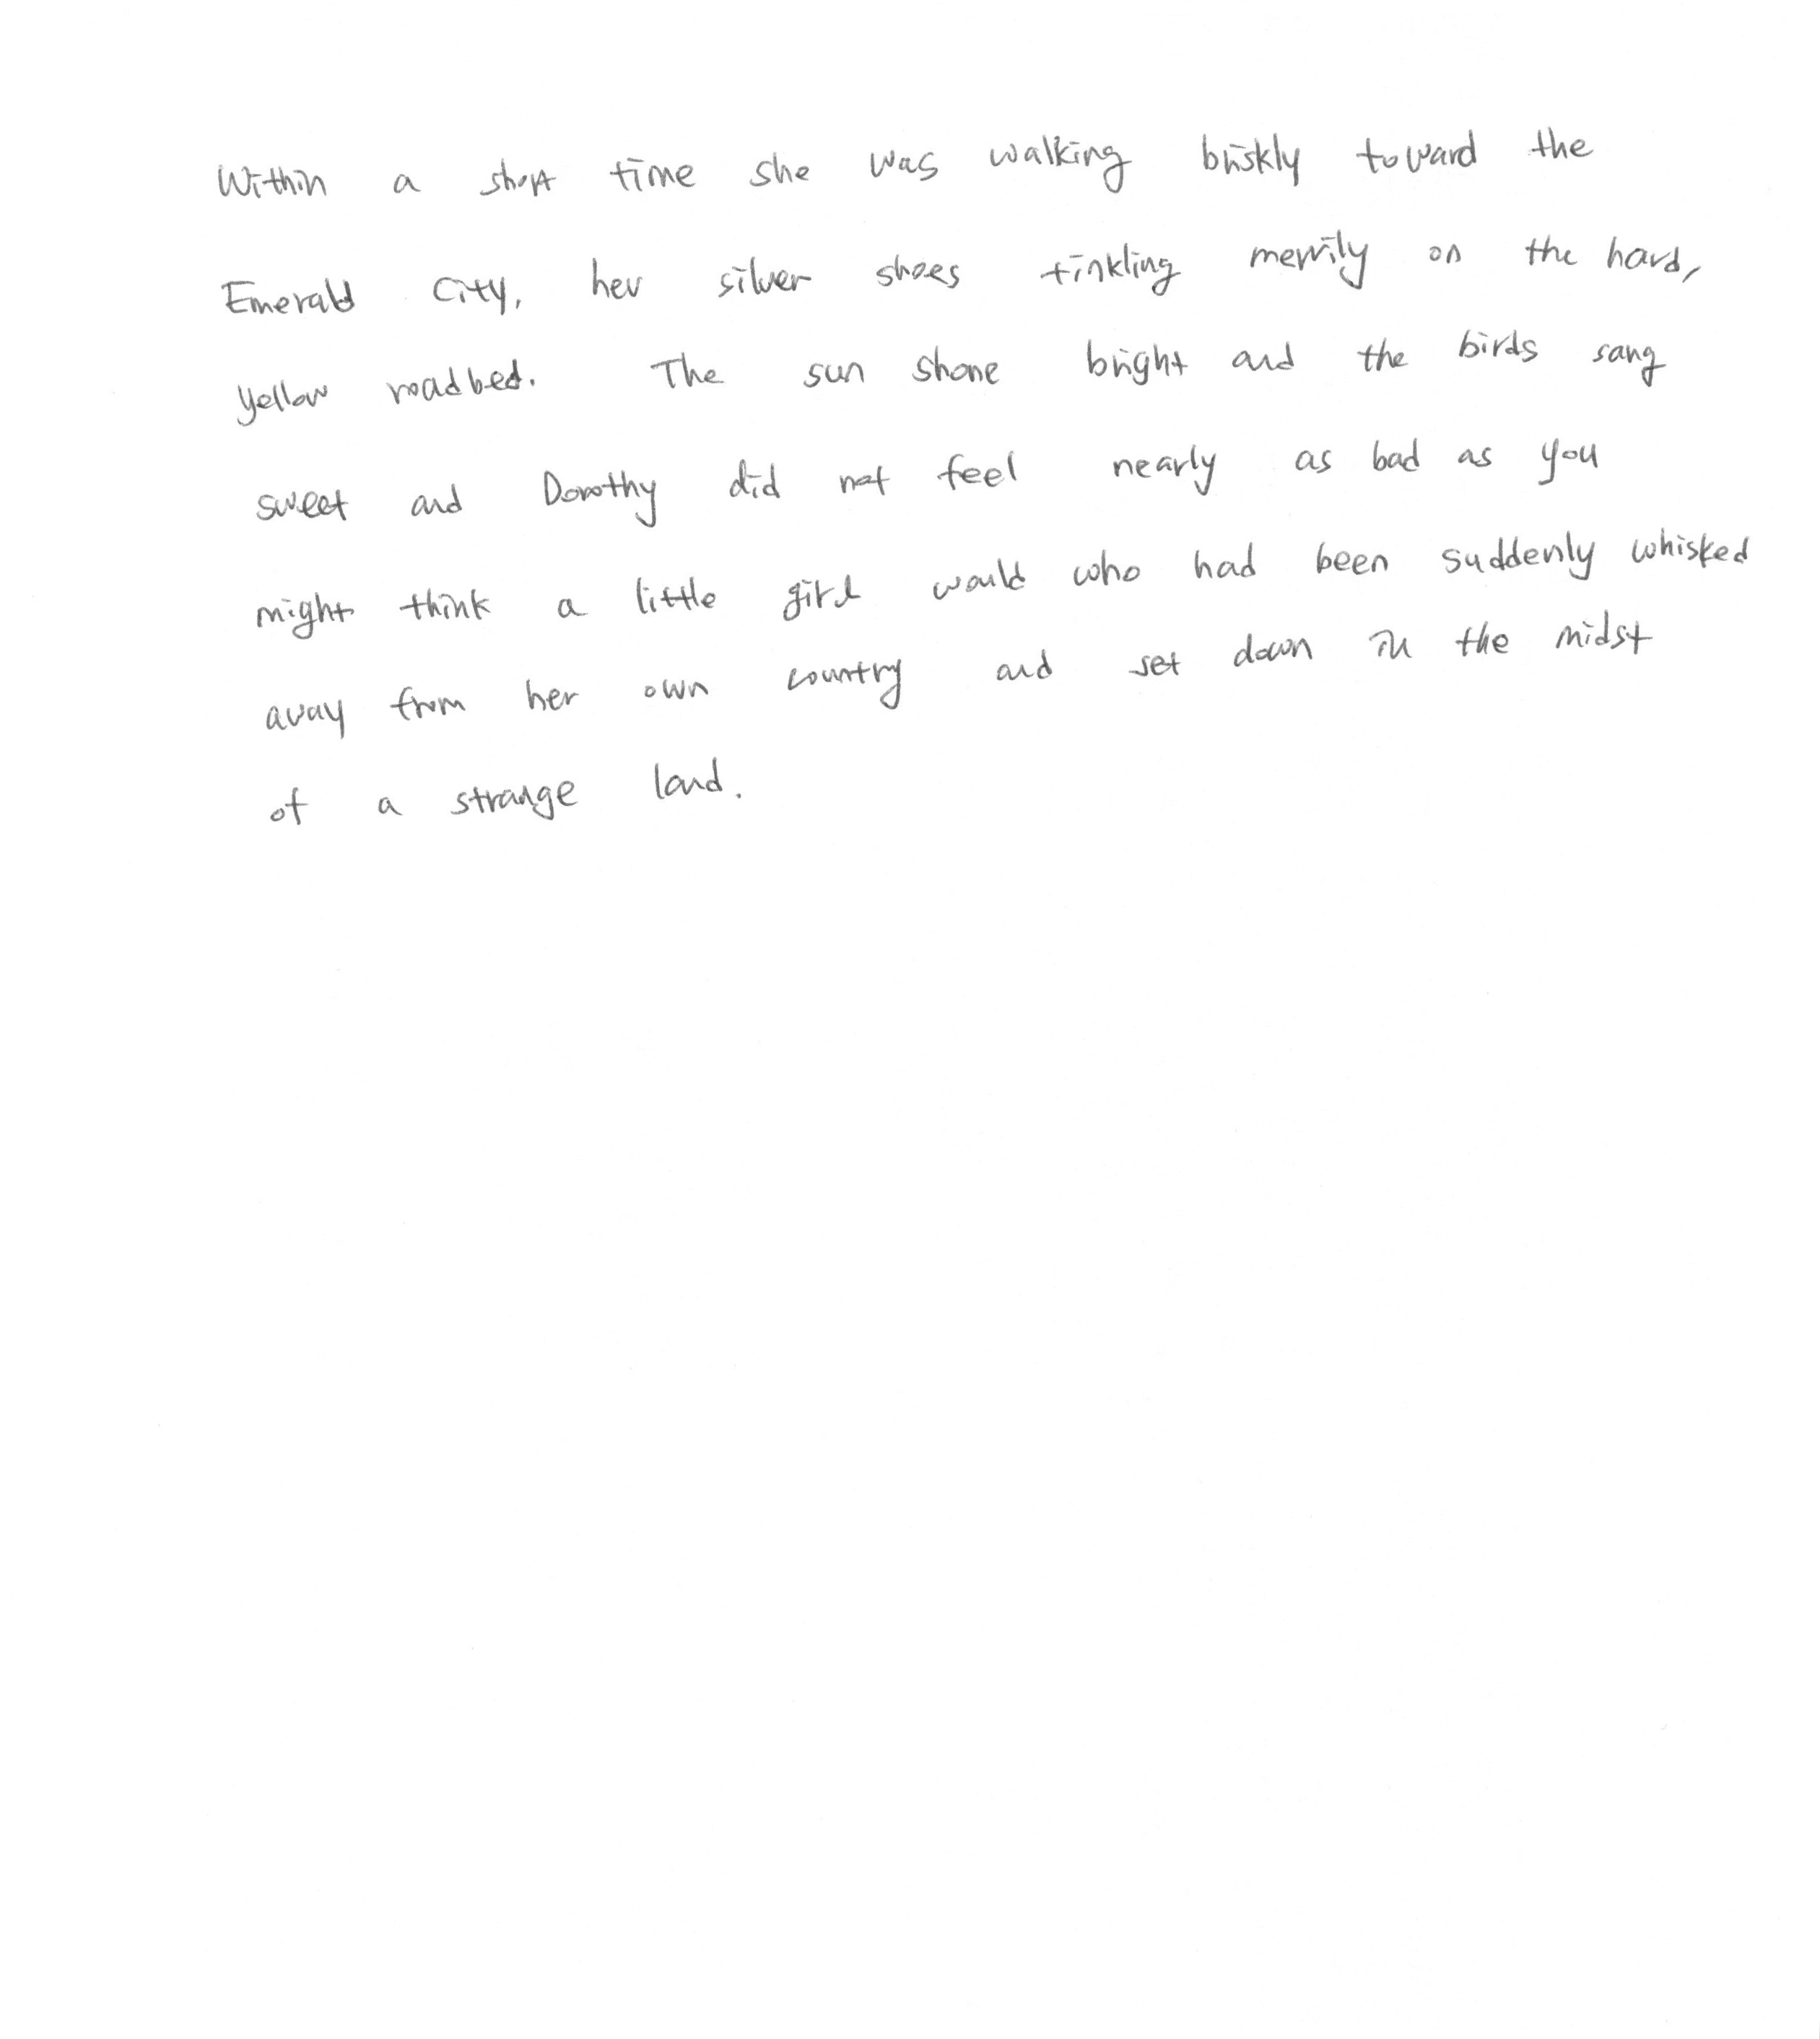 Within a short time she was walking briskly toward the
Emerald City, her silver shoes tinkling merrily on the hard,
yellow roadbed. The sun shone bright and the birds sang
sweet and Dorothy did not feel nearly as bad as you
might think a little girl would who had been suddenly whisked
away from her own country and set down in the midst
of a strange land.